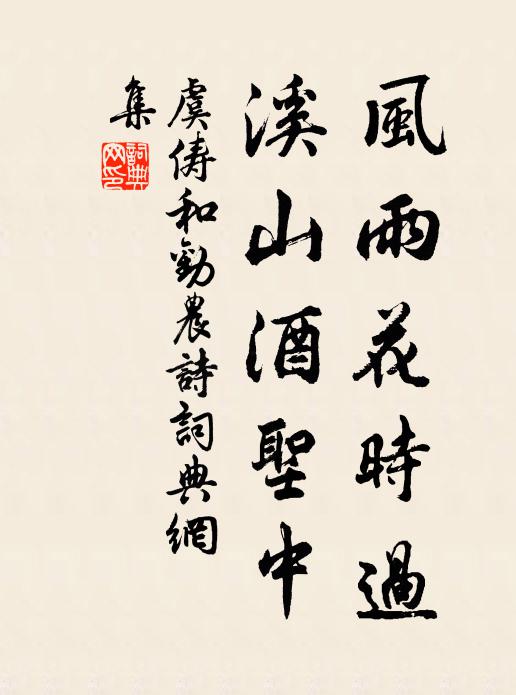 風雨花時過
溪山酒聖中
虞俦和勸農詩詞典網
集
詞典
网印